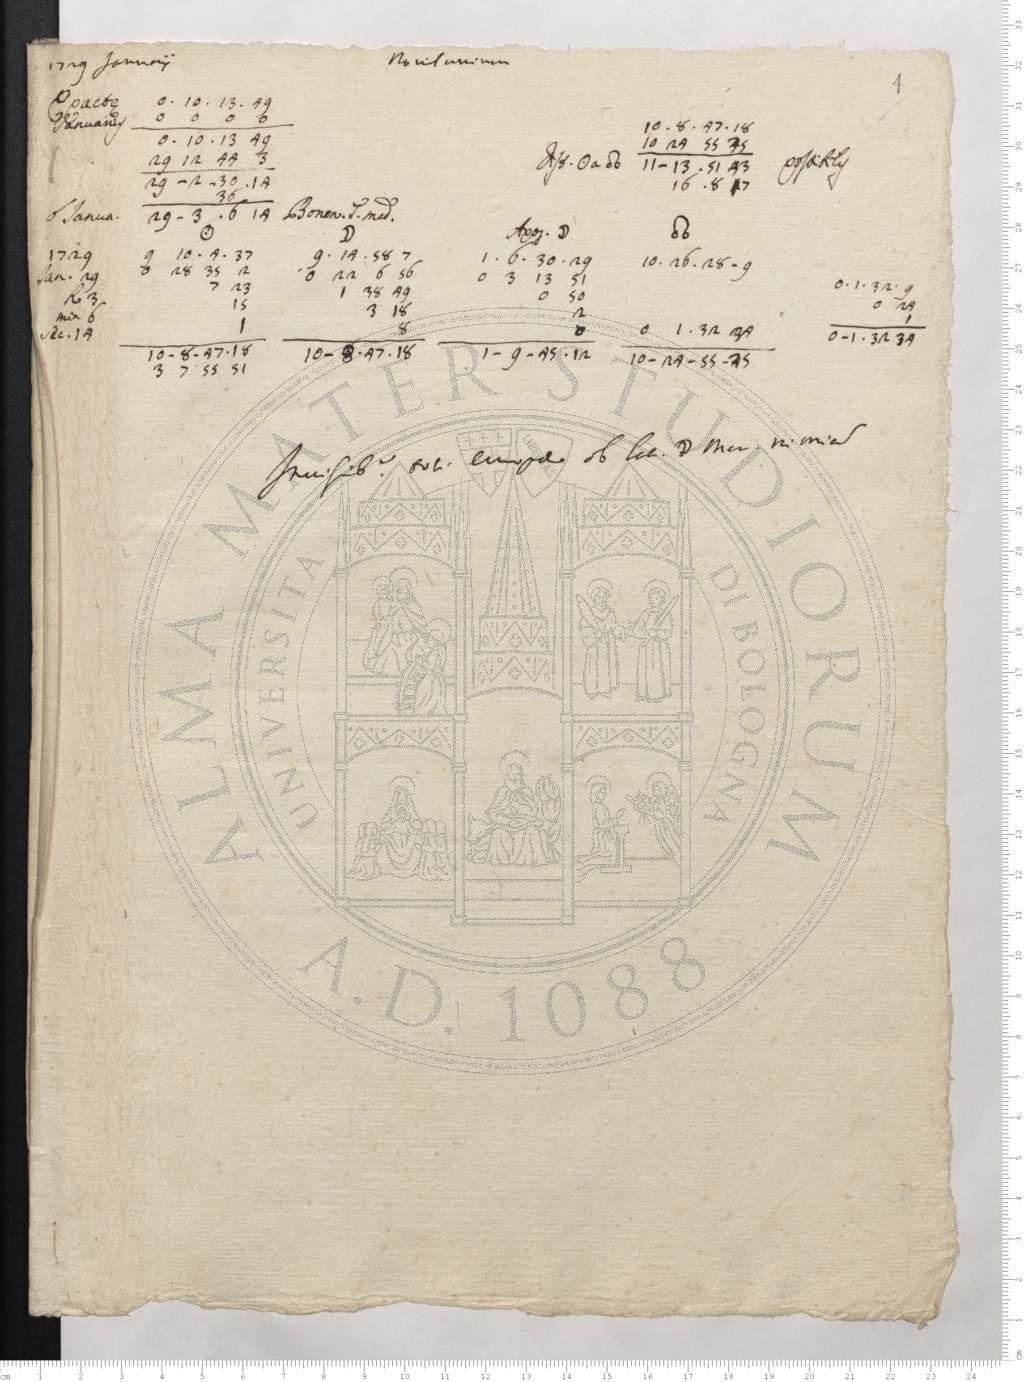 1729 Januarij Novilunium
1
Epactę 0. 10. 13. 49
Januarij 0 0 0 0
0. 10. 13 49
29 12 44 3
29 - 2 - .30 .14
36
29 - 3 . 6 14 Bonon. T. med.
10 . 8 . 47 . 18
10 24 55 45
11 - 13 . 51 43 possibly
16 . 8 17
☉ ☽ Apog. ☽ ☊
1729 9 10 . 4 . 37 9 . 14 . 58 7 1 . 6 . 30 . 29 10 . 26 . 28 - 9
Jan. 29 0 28 35 2 0 22 6 56 0 3 13 51 0 . 1 . 32 . 9
h 3 7 23 1 38 49 0 50 0 24
min 6 15 3 18 2 1
sec. 14 1 8 0 0 1 . 32 34 0 - 1 . 32 34
10 - 8 - 47 . 18 10 - 8 . 47 . 18 1 - 9 - 45 . 12 10 - 24 - 55 - 45
3 7 55 51
ob lat. ☽ Mer.
ALMA MATER STUDIORUM
UNIVERSITA DI BOLOGNA
A.D. 1088